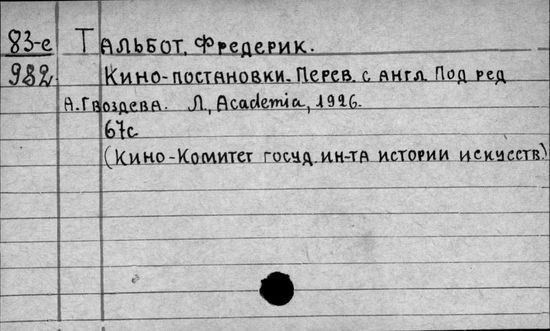 83-е Тальбот, Фредерик.
982. Кино-постановки. Перев. с англ. Под ред
А. Гвоздева. Л., Academia, 1926.
67с
(Кино-Комитет госуд. ин-та истории искусств.)